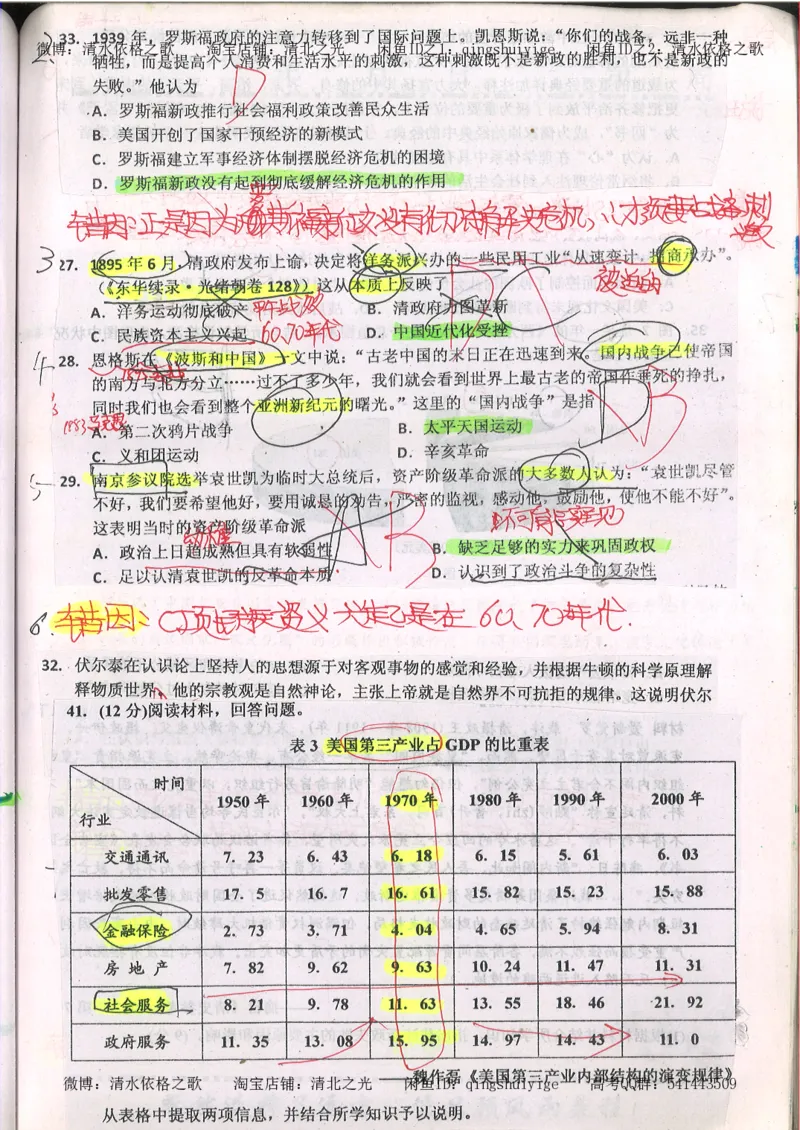 33. 1939 年，罗斯福政府的注意力转移到了国际问题上。凯恩斯说：“你们的战备，远非一种
微博：清水依格之歌 淘宝店铺：清北之光 闲鱼ID之1：qingshuiyige 闲鱼ID之2：清水依格之歌
牺牲，而是提高个人消费和生活水平的刺激，这种刺激既不是新政的胜利，也不是新政的
失败。”他认为
A．罗斯福新政推行社会福利政策改善民众生活
B．美国开创了国家干预经济的新模式
C．罗斯福建立军事经济体制摆脱经济危机的困境
D．罗斯福新政没有起到彻底缓解经济危机的作用
错因：正是因为罗斯福新政没有彻底解决危机，才需要战备刺激
27. 1895 年 6 月，清政府发布上谕，决定将洋务派兴办的一些民国工业“从速变计，招商承办”。
（《东华续录·光绪朝卷 128》）这从本质上反映了 被迫的
A．洋务运动彻底破产 甲午战败 B．清政府力图革新
C．民族资本主义兴起 60、70年代 D．中国近代化受挫
28. 恩格斯在《波斯和中国》一文中说：“古老中国的末日正在迅速到来。国内战争已使帝国
的南方与北方分立……过不了多少年，我们就会看到世界上最古老的帝国作垂死的挣扎，
同时我们也会看到整个亚洲新纪元的曙光。”这里的“国内战争”是指
A．第二次鸦片战争 B．太平天国运动
C．义和团运动 D．辛亥革命
29. 南京参议院选举袁世凯为临时大总统后，资产阶级革命派的大多数人认为：“袁世凯尽管
不好，我们要希望他好，要用诚恳的劝告，严密的监视，感动他，鼓励他，使他不能不好”。
这表明当时的资产阶级革命派
A．政治上日趋成熟但具有软弱性 B．缺乏足够的实力来巩固政权
C．足以认清袁世凯的反革命本质 D．认识到了政治斗争的复杂性
错因：C项民族资本主义产生是在60、70年代.
32. 伏尔泰在认识论上坚持人的思想源于对客观事物的感觉和经验，并根据牛顿的科学原理解
释物质世界。他的宗教观是自然神论，主张上帝就是自然界不可抗拒的规律。这说明伏尔
41. (12 分)阅读材料，回答问题。
表 3 美国第三产业占 GDP 的比重表
时间 行业 1950 年 1960 年 1970 年 1980 年 1990 年 2000 年
交通通讯 7. 23 6. 43 6. 18 6. 15 5. 61 6. 03
批发零售 17. 5 16. 7 16. 61 15. 82 15. 23 15. 88
金融保险 2. 73 3. 71 4. 04 4. 65 5. 94 8. 31
房 地 产 7. 82 9. 62 9. 63 10. 24 11. 47 11. 31
社会服务 8. 21 9. 78 11. 63 13. 55 18. 46 21. 92
政府服务 11. 35 13. 08 15. 95 14. 97 14. 43 11. 0
——魏作磊《美国第三产业内部结构的演变规律》
微博：清水依格之歌 淘宝店铺：清北之光 闲鱼ID之1：qingshuiyige 高考QQ群：541443509
从表格中提取两项信息，并结合所学知识予以说明。